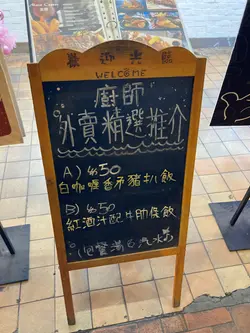 歡迎光臨
WELCOME
廚師
外賣精選推介
A) $50
白咖喱香茅豬扒飯
B) $50
紅酒汁配牛肋條飯